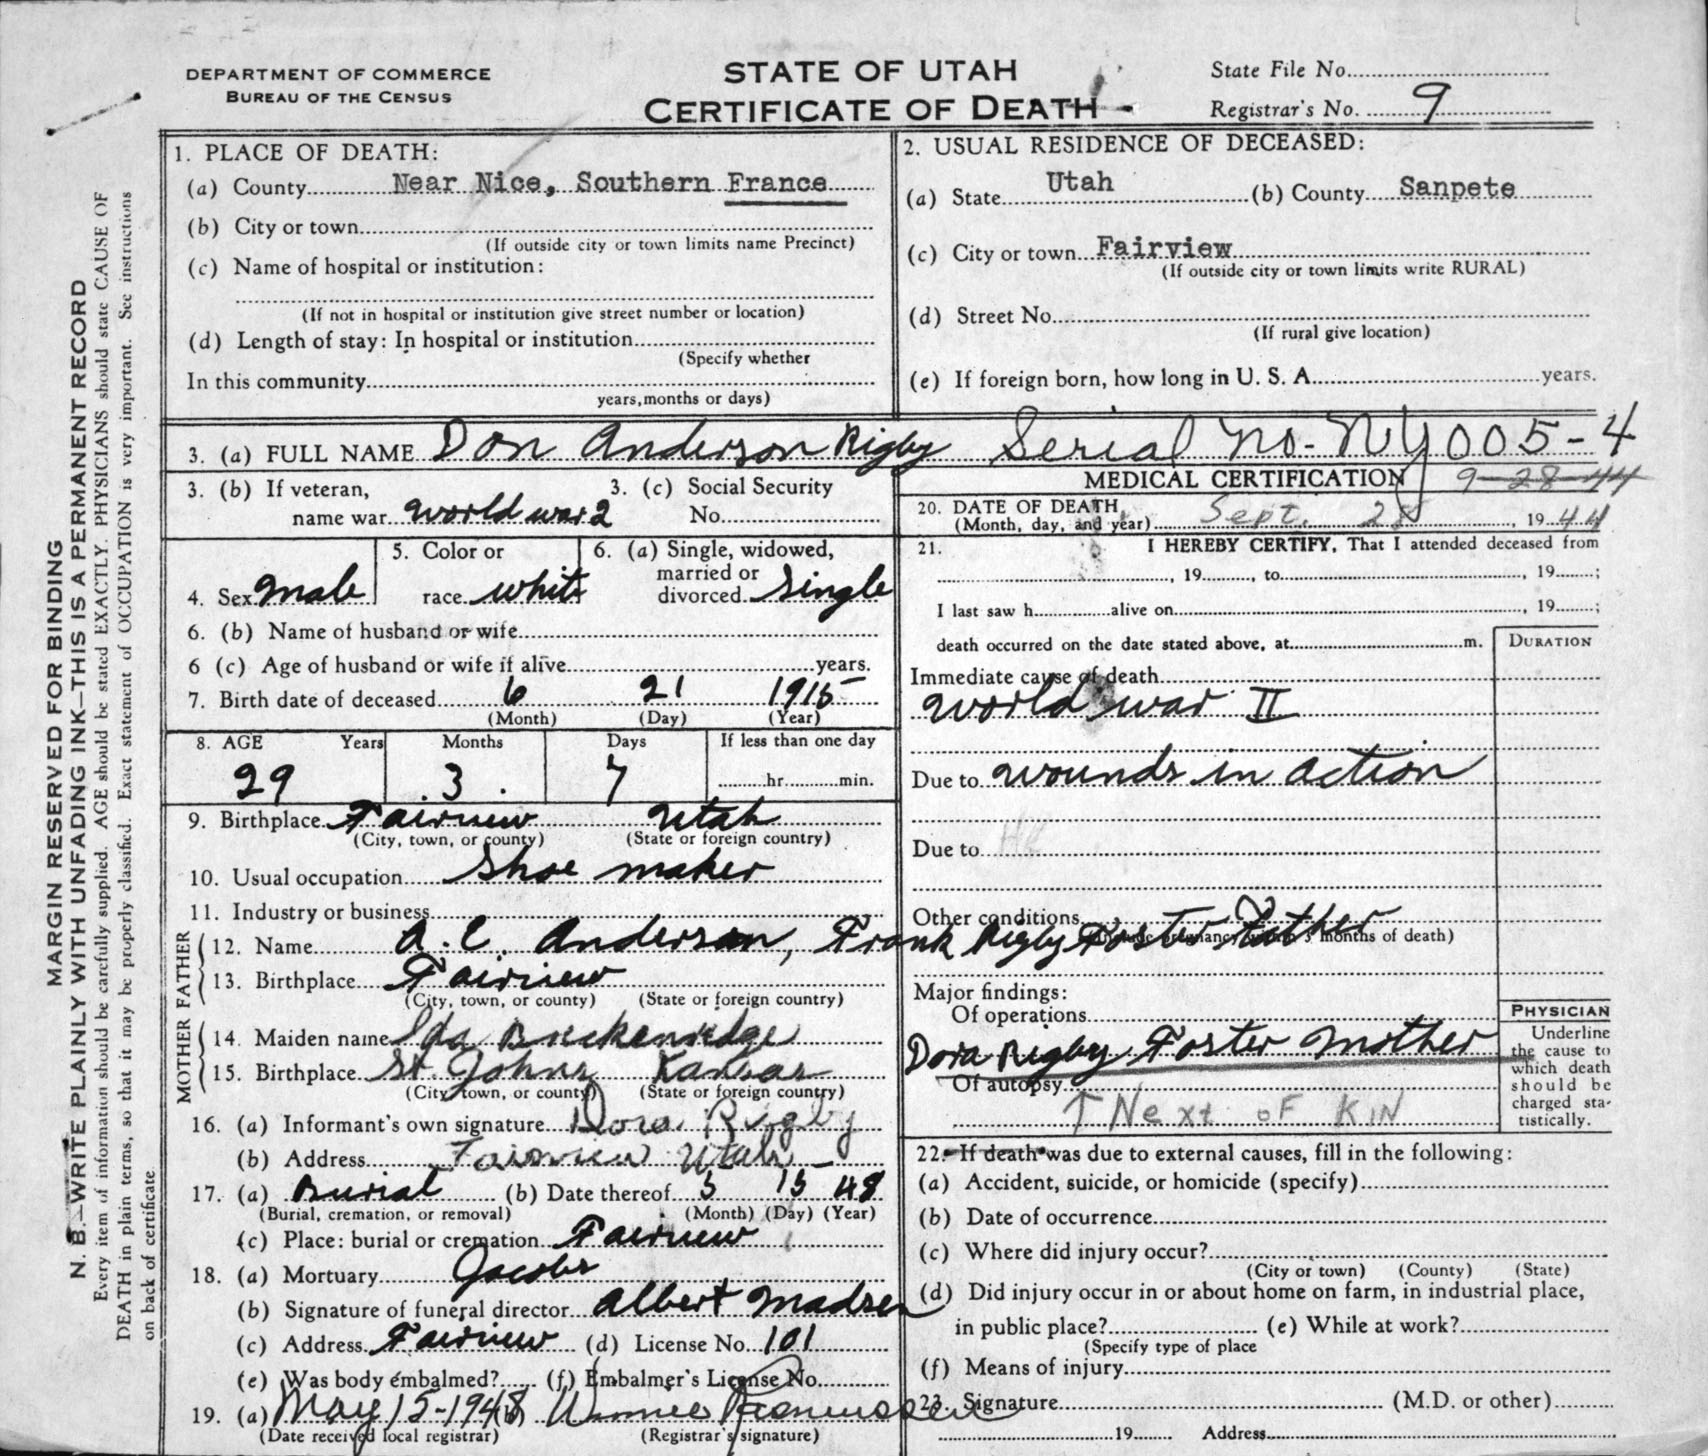 DEPARTMENT OF COMMERCE
BUREAU OF THE CENSUS
STATE OF UTAH
CERTIFICATE OF DEATH
State File No.
Registrar's No. 9
MARGIN RESERVED FOR BINDING
N. B.—WRITE PLAINLY WITH UNFADING INK—THIS IS A PERMANENT RECORD
Every item of information should be carefully supplied. AGE should be stated EXACTLY. PHYSICIANS should state CAUSE OF
DEATH in plain terms, so that it may be properly classified. Exact statement of OCCUPATION is very important. See instructions
on back of certificate.
1. PLACE OF DEATH:
(a) County Near Nice, Southern France
(b) City or town
(If outside city or town limits name Precinct)
(c) Name of hospital or institution:
(If not in hospital or institution give street number or location)
(d) Length of stay: In hospital or institution
(Specify whether
In this community
years, months or days)
2. USUAL RESIDENCE OF DECEASED:
(a) State Utah (b) County Sanpete
(c) City or town Fairview
(If outside city or town limits write RURAL)
(d) Street No.
(If rural give location)
(e) If foreign born, how long in U. S. A. years.
3. (a) FULL NAME Don Anderson Rigby Serial No- NY005-4
3. (b) If veteran,
name war world war 2
3. (c) Social Security
No.
4. Sex male
5. Color or
race white
6. (a) Single, widowed,
married or
divorced Single
6. (b) Name of husband or wife
6 (c) Age of husband or wife if alive years.
7. Birth date of deceased 6 21 1915
(Month) (Day) (Year)
8. AGE Years Months Days If less than one day
29 3 7 hr. min.
9. Birthplace Fairview Utah
(City, town, or county) (State or foreign country)
10. Usual occupation Shoe maker
11. Industry or business
FATHER
12. Name A. C. Anderson, Frank Rigby Foster Father
13. Birthplace Fairview
(City, town, or county) (State or foreign country)
MOTHER
14. Maiden name Ida Breckenridge
15. Birthplace St. Johns Kansas
(City, town, or county) (State or foreign country)
16. (a) Informant's own signature Dora Rigby
(b) Address Fairview Utah
17. (a) Burial (b) Date thereof 5 15 48
(Burial, cremation, or removal) (Month) (Day) (Year)
(c) Place: burial or cremation Fairview
18. (a) Mortuary Jacobs
(b) Signature of funeral director Albert Madsen
(c) Address Fairview (d) License No. 101
(e) Was body embalmed? (f) Embalmer's License No.
19. (a) May 15-1948 (b) Rasmussen
(Date received local registrar) (Registrar's signature)
MEDICAL CERTIFICATION 9-28-44
20. DATE OF DEATH
(Month, day, and year) Sept. 28, 1944
21. I HEREBY CERTIFY, That I attended deceased from
, 19 , to , 19 ;
I last saw h alive on , 19 ;
death occurred on the date stated above, at m.
DURATION
Immediate cause of death
World war II
Due to wounds in action
Due to
Other conditions
(Include pregnancy within 3 months of death)
Major findings:
Of operations
Dora Rigby Foster Mother
Of autopsy
↑ Next of Kin
PHYSICIAN
Underline
the cause to
which death
should be
charged sta-
tistically.
22. If death was due to external causes, fill in the following:
(a) Accident, suicide, or homicide (specify)
(b) Date of occurrence
(c) Where did injury occur?
(City or town) (County) (State)
(d) Did injury occur in or about home on farm, in industrial place,
in public place? (e) While at work?
(Specify type of place
(f) Means of injury
23. Signature (M.D. or other)
19 Address